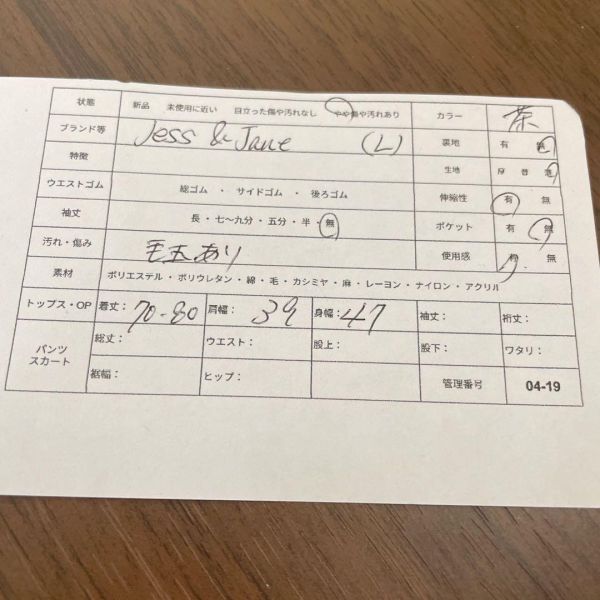 状態 新品 未使用に近い 目立った傷や汚れなし やや傷や汚れあり カラー 茶
ブランド等 Jess & Jane (L) 裏地 有 無
特徴 生地 厚 普 薄
ウエストゴム 総ゴム ・ サイドゴム ・ 後ろゴム 伸縮性 有 無
袖丈 長・七〜九分・五分・半・無 ポケット 有 無
汚れ・傷み 毛玉あり 使用感 有 無
素材 ポリエステル・ポリウレタン・綿・毛・カシミヤ・麻・レーヨン・ナイロン・アクリル
トップス・OP 着丈: 70-80 肩幅: 39 身幅: 47 袖丈: 裄丈:
パンツ スカート 総丈: ウエスト: 股上: 股下: ワタリ:
裾幅: ヒップ: 管理番号 04-19